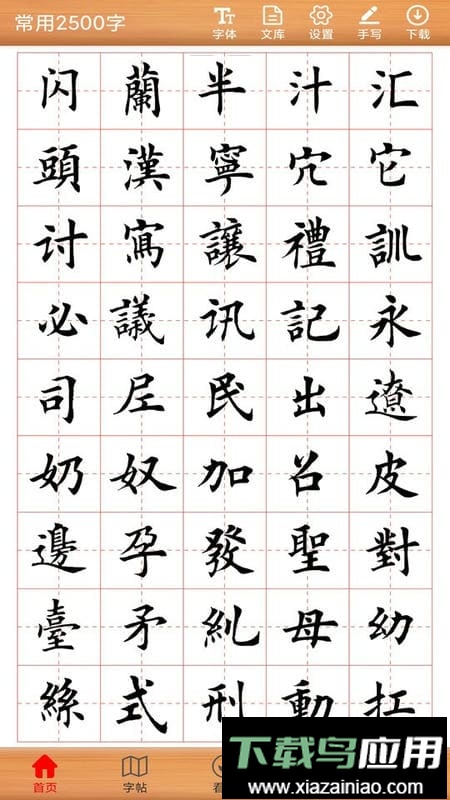 常用2500字
字体 文库 设置 手写 下载
闪 蘭 半 汁 汇
頭 漢 寧 穴 它
讨 寫 讓 禮 訓
必 議 讯 記 永
司 尼 民 出 遼
奶 奴 加 召 皮
邊 孕 發 聖 對
臺 矛 糾 母 幼
絲 式 刑 動 扛
首页 字帖 看
下载鸟应用
www.xiazainiao.com